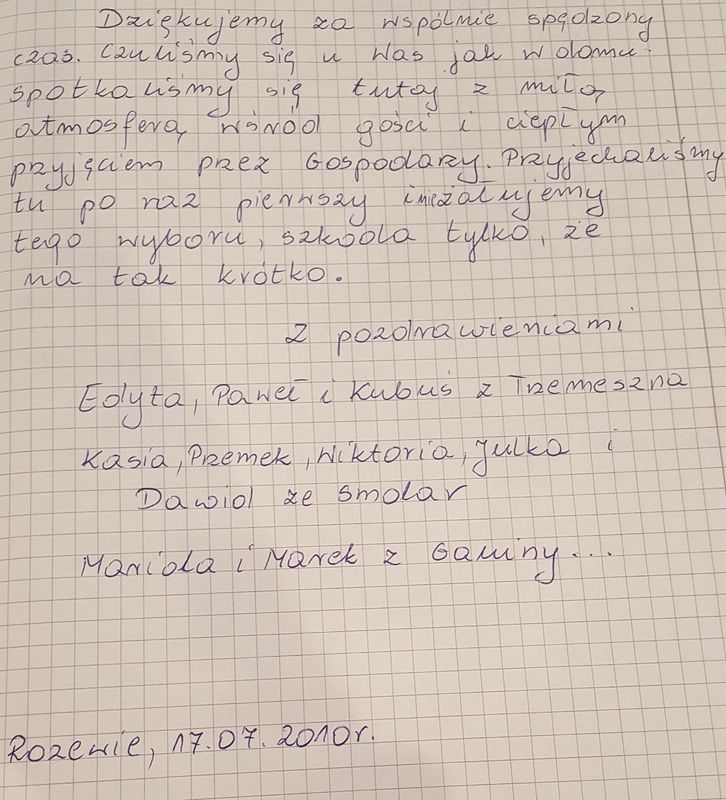 Dziękujemy za wspólnie spędzony
czas. Czuliśmy się u Was jak w domu.
Spotkaliśmy się tutaj z miłą
atmosferą, wśród gości i ciepłym
przyjęciem przez Gospodarzy. Przyjechaliśmy
tu po raz pierwszy i nieżałujemy
tego wyboru, szkoda tylko, że
na tak krótko.
Z pozdrawieniami
Edyta, Paweł i Kubuś z Trzemeszna
Kasia, Przemek, Wiktoria, Julka i
Dawid ze Smolar
Mariola i Marek z
Rozewie, 17.07.2010r.